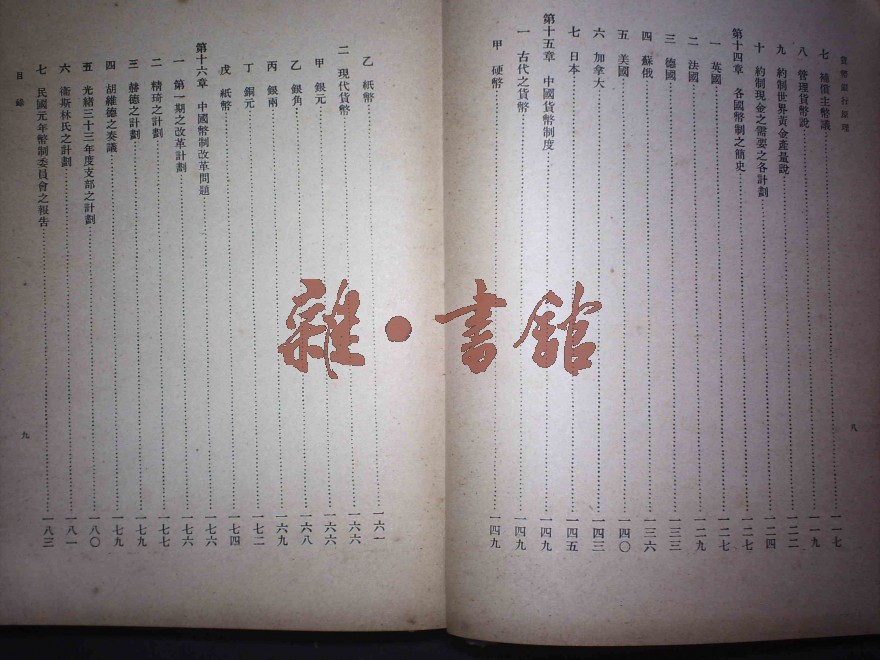 貨幣銀行原理
七 補償主幣議 一一七
八 管理貨幣說 一一九
九 約制世界黃金產量說 一二二
十 約制現金之需要之各計劃 一二四
第十四章 各國幣制之簡史 一二七
一 英國 一二七
二 法國 一二九
三 德國 一三三
四 蘇俄 一三六
五 美國 一四〇
六 加拿大 一四三
七 日本 一四五
第十五章 中國貨幣制度 一四九
一 古代之貨幣 一四九
甲 硬幣 一四九
八
乙 紙幣 一六一
二 現代貨幣 一六六
甲 銀元 一六六
乙 銀角 一六八
丙 銀兩 一六九
丁 銅元 一七二
戊 紙幣 一七四
第十六章 中國幣制改革問題 一七六
一 第一期之改革計劃 一七六
二 精琦之計劃 一七七
三 赫德之計劃 一七九
四 胡維德之奏議 一七九
五 光緒三十三年度支部之計劃 一八〇
六 衞斯林氏之計劃 一八一
七 民國元年幣制委員會之報告 一八三
目錄
九
雜·書館